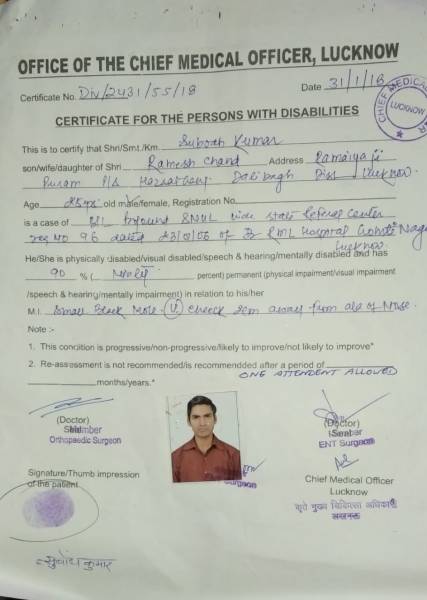 OFFICE OF THE CHIEF MEDICAL OFFICER, LUCKNOW
Certificate No. DN/2431/55/18 Date 31/1/18
CHIEF MEDICAL
LUCKNOW
CERTIFICATE FOR THE PERSONS WITH DISABILITIES
This is to certify that Shri/Smt./Km. Subodh Kumar
son/wife/daughter of Shri Ramesh Chand Address
Puram Hazratganj Dalibagh Diss Lucknow
Age old male/female, Registration No.
is a case of B/L Profound SNHL vide state Referral Center
reg NO 96 dated of Dr RML Hospital Gomti Nagar
Lucknow
He/She is physically disabled/visual disabled/speech & hearing/mentally disabled and has
90 % ( Ninety percent) permanent (physical impairment/visual impairment
/speech & hearing/mentally impairment) in relation to his/her
M.I. Small Black Mole cheeck away from ala of Nose.
Note :-
1. This condition is progressive/non-progressive/likely to improve/not likely to improve*
2. Re-assessment is not recommended/is recommendded after a period of
months/years.* ONE ATTENDENT ALLOWED
(Doctor)
Member
Orthopaedic Surgeon
(Doctor)
Member
ENT Surgeon
Surgeon
Signature/Thumb impression
of the patient
Chief Medical Officer
Lucknow
मुख्य चिकित्सा अधिकारी
लखनऊ
सुबोध कुमार